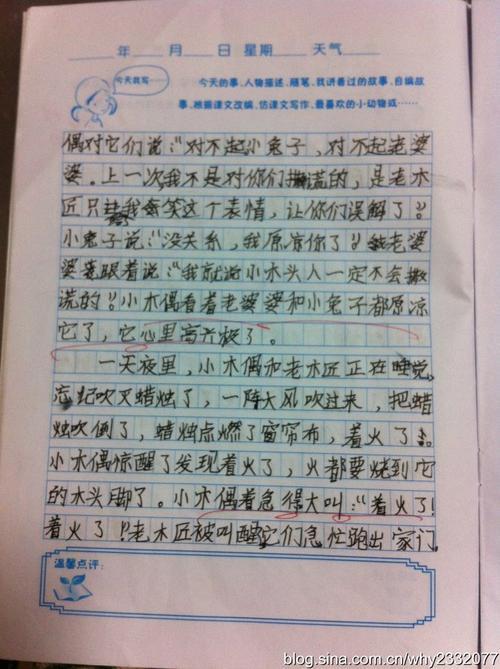 年 月 日 星期 天气
今天我写……
今天的事、人物描述、随笔、我讲着过的故事、自编故
事、根据课文改编、仿课文写作、最喜欢的小动物或……
偶对它们说："对不起小兔子，对不起老婆
婆。上一次我不是对你们撒谎的，是老木
匠只我笑这个表情，让你们误解了。"
小兔子说："没关系，我原凉你了"老婆
婆跟着说："我就说小木头人一定不会撒
谎的。"小木偶看着老婆婆和小兔子都原凉
它了，它心里高兴极了。
一天夜里，小木偶和老木匠正在睡觉，
忘记吹灭蜡烛了，一阵大风吹过来，把蜡
烛吹倒了，蜡烛点燃了窗帘布，着火了。
小木偶惊醒了发现着火了，火都要烧到它
的木头脚了。小木偶着急得大叫："着火了！
着火了！"老木匠被叫醒它们急忙跑出家门，
温馨点评：
blog.sina.com.cn/why2332077